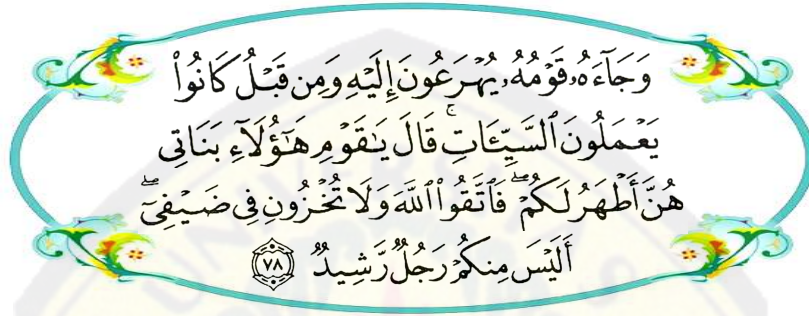 وَجَآءَهُۥ قَوْمُهُۥ يُهْرَعُونَ إِلَيْهِ وَمِن قَبْلُ كَانُوا۟
يَعْمَلُونَ ٱلسَّيِّـَٔاتِ ۚ قَالَ يَـٰقَوْمِ هَـٰٓؤُلَآءِ بَنَاتِى
هُنَّ أَطْهَرُ لَكُمْ ۖ فَٱتَّقُوا۟ ٱللَّهَ وَلَا تُخْزُونِ فِى ضَيْفِىٓ ۖ
أَلَيْسَ مِنكُمْ رَجُلٌ رَّشِيدٌ ٧٨